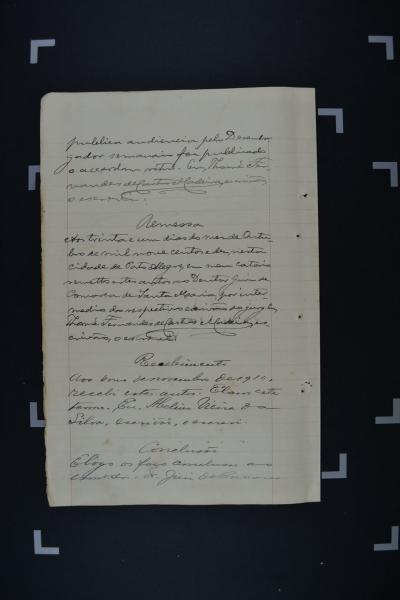 publica audiencia pelo Desembar
gador semanario foi publicado
o accordam retro. Eu, Thomé Fer
nandes de Castro Madeira, escrivão,
o escrevi.
Remessa
Aos trinta e um dias do mez de Outu
bro de mil nove centos e dez, nesta
cidade de Porto Alegre, em meu cartorio
remetto estes autos ao Doutor Juiz da
Comarca de Santa Maria, por inter
medio do respectivo escrivão do jury. Eu,
Thomé Fernandes de Castro Madeira, es
crivão, o escrevi.
Recebimento
Aos dous de novembro de 1910,
recebi estes autos. E lavro este
termo. Eu, Vieira da
Silva, escrivão, o escrevi.
Conclusão
E logo os faço conclusos ao
Dr. Juiz da Comarca